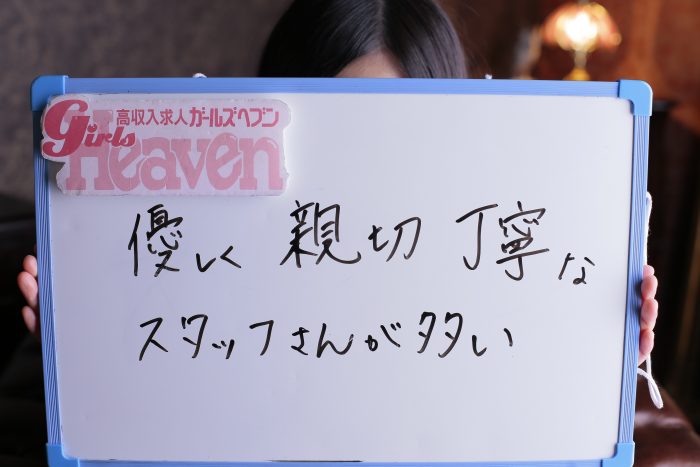 高収入求人ガールズヘブン
Girls
Heaven
優しく 親切 丁寧な
スタッフさんが多い